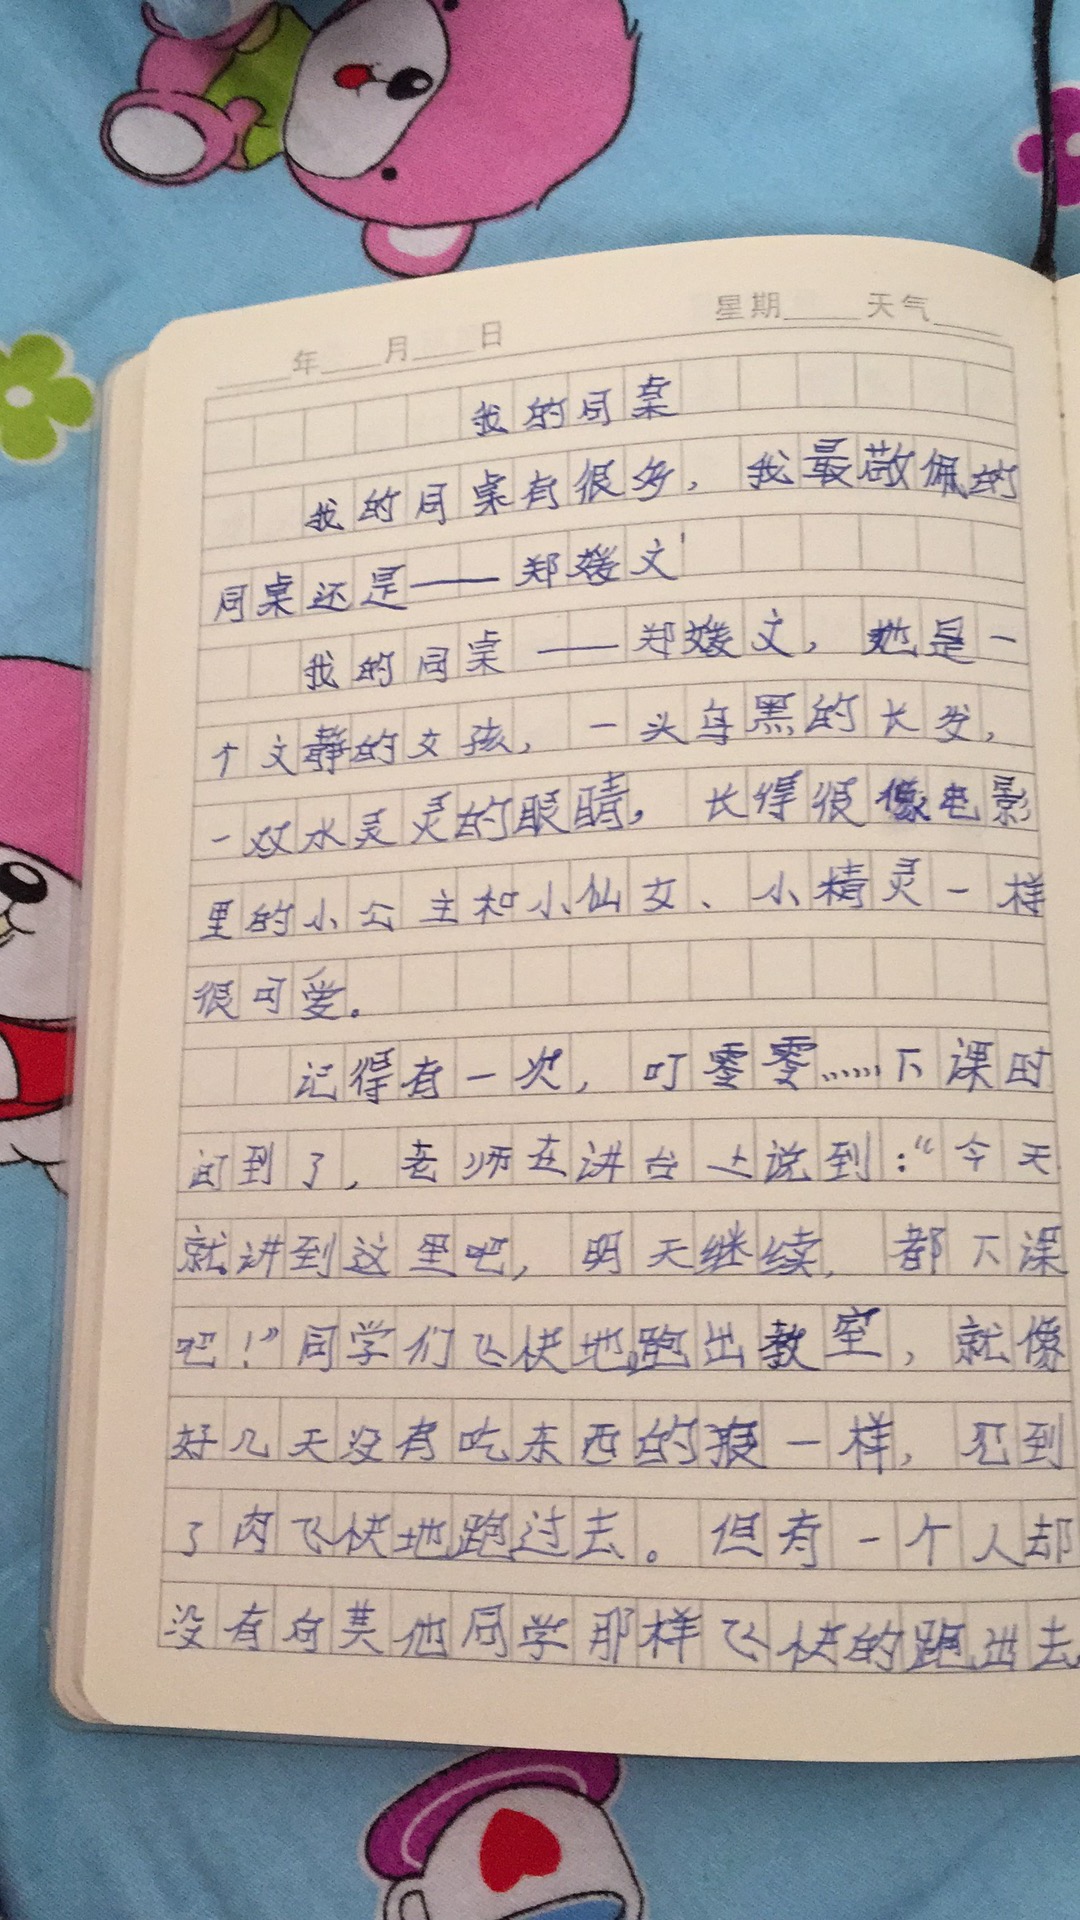 年 月 日 星期 天气
我的同桌
我的同桌有很多，我最敬佩的
同桌还是——郑媛文'
我的同桌——郑媛文，她是一
个文静的女孩，一头乌黑的长发，
一双水灵灵的眼睛，长得很像电影
里的小公主和小仙女、小精灵一样
很可爱。
记得有一次，叮零零……下课时
间到了，老师在讲台上说到：“今天
就讲到这里吧，明天继续，都下课
吧！”同学们飞快地跑出教室，就像
好几天没有吃东西的狼一样，见到
了肉飞快地跑过去。但有一个人却
没有向其他同学那样飞快的跑出去